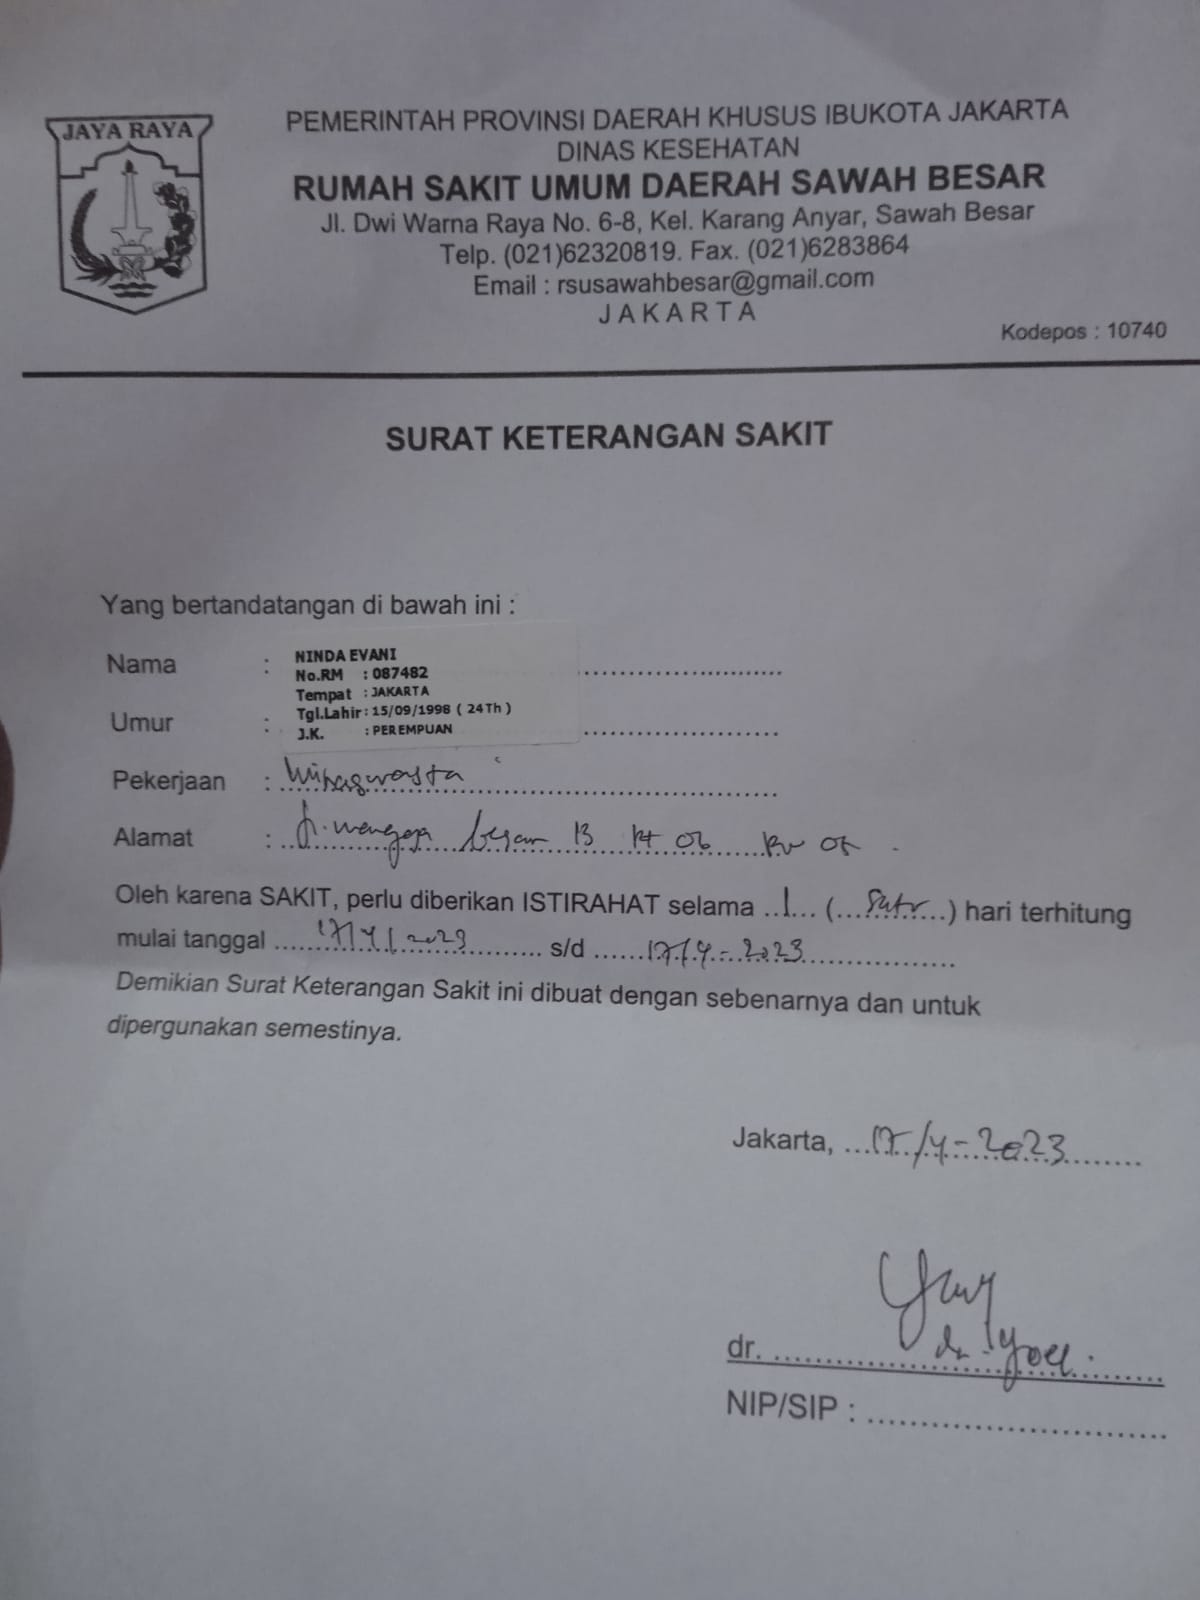 JAYA RAYA
PEMERINTAH PROVINSI DAERAH KHUSUS IBUKOTA JAKARTA
DINAS KESEHATAN
RUMAH SAKIT UMUM DAERAH SAWAH BESAR
Jl. Dwi Warna Raya No. 6-8, Kel. Karang Anyar, Sawah Besar
Telp. (021)62320819. Fax. (021)6283864
Email : rsusawahbesar@gmail.com
JAKARTA
Kodepos : 10740
SURAT KETERANGAN SAKIT
Yang bertandatangan di bawah ini :
Nama :
NINDA EVANI
No.RM : 087482
Tempat : JAKARTA
Tgl.Lahir : 15/09/1998 ( 24Th )
J.K. : PEREMPUAN
Umur :
Pekerjaan : Wiraswasta
Alamat : besar 13 Rt 06 Rw
Oleh karena SAKIT, perlu diberikan ISTIRAHAT selama 1 (satu) hari terhitung
mulai tanggal 17/4/2023 s/d 17/4-2023
Demikian Surat Keterangan Sakit ini dibuat dengan sebenarnya dan untuk
dipergunakan semestinya.
Jakarta, 17/4-2023
dr. dr. Yoel.
NIP/SIP :